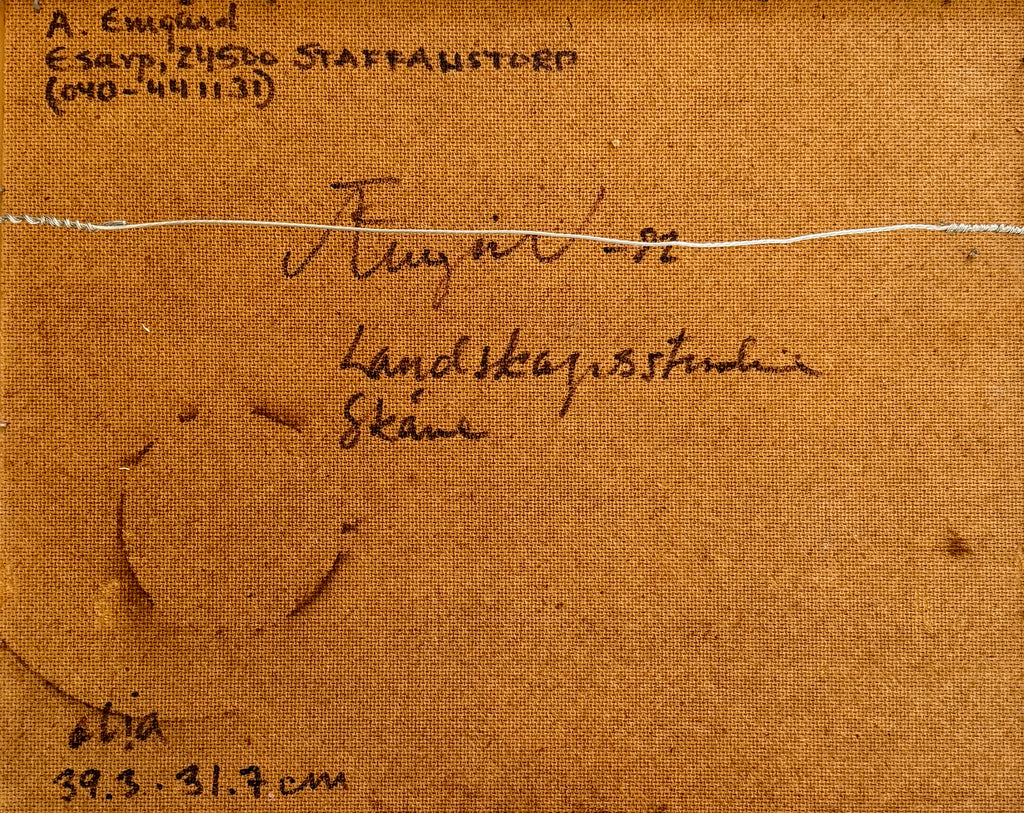 A. Emgård
Esarp, 24500 STAFFANSTORP
(040-441131)
-82
Landskapsstudie
Skåne
olja
39.3 · 31.7 cm